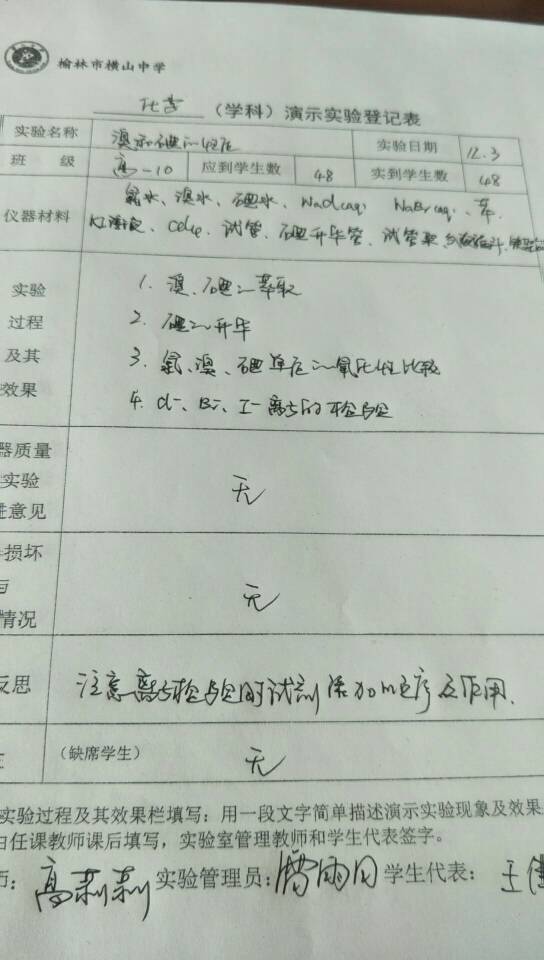 榆林市横山中学
化学（学科）演示实验登记表
实验名称 溴和碘的性质 实验日期 12.3
班 级 高一10 应到学生数 48 实到学生数 48
氯水、溴水、碘水、NaCl(aq) NaBr(aq)、苯、
仪器材料
KI溶液、CCl4、试管、碘升华管、试管架、分液漏斗、
实验
过程
及其
效果
1. 溴、碘的萃取
2. 碘的升华
3. 氯、溴、碘单质的氧化性比较
4. Cl-、Br-、I-离子的检验
器质量
实验
进意见
无
损坏
与
情况
无
反思 注意离子检验时试剂添加的顺序及作用.
（缺席学生） 无
实验过程及其效果栏填写：用一段文字简单描述演示实验现象及效果
由任课教师课后填写，实验室管理教师和学生代表签字。
师： 高莉莉 实验管理员： 学生代表： 王